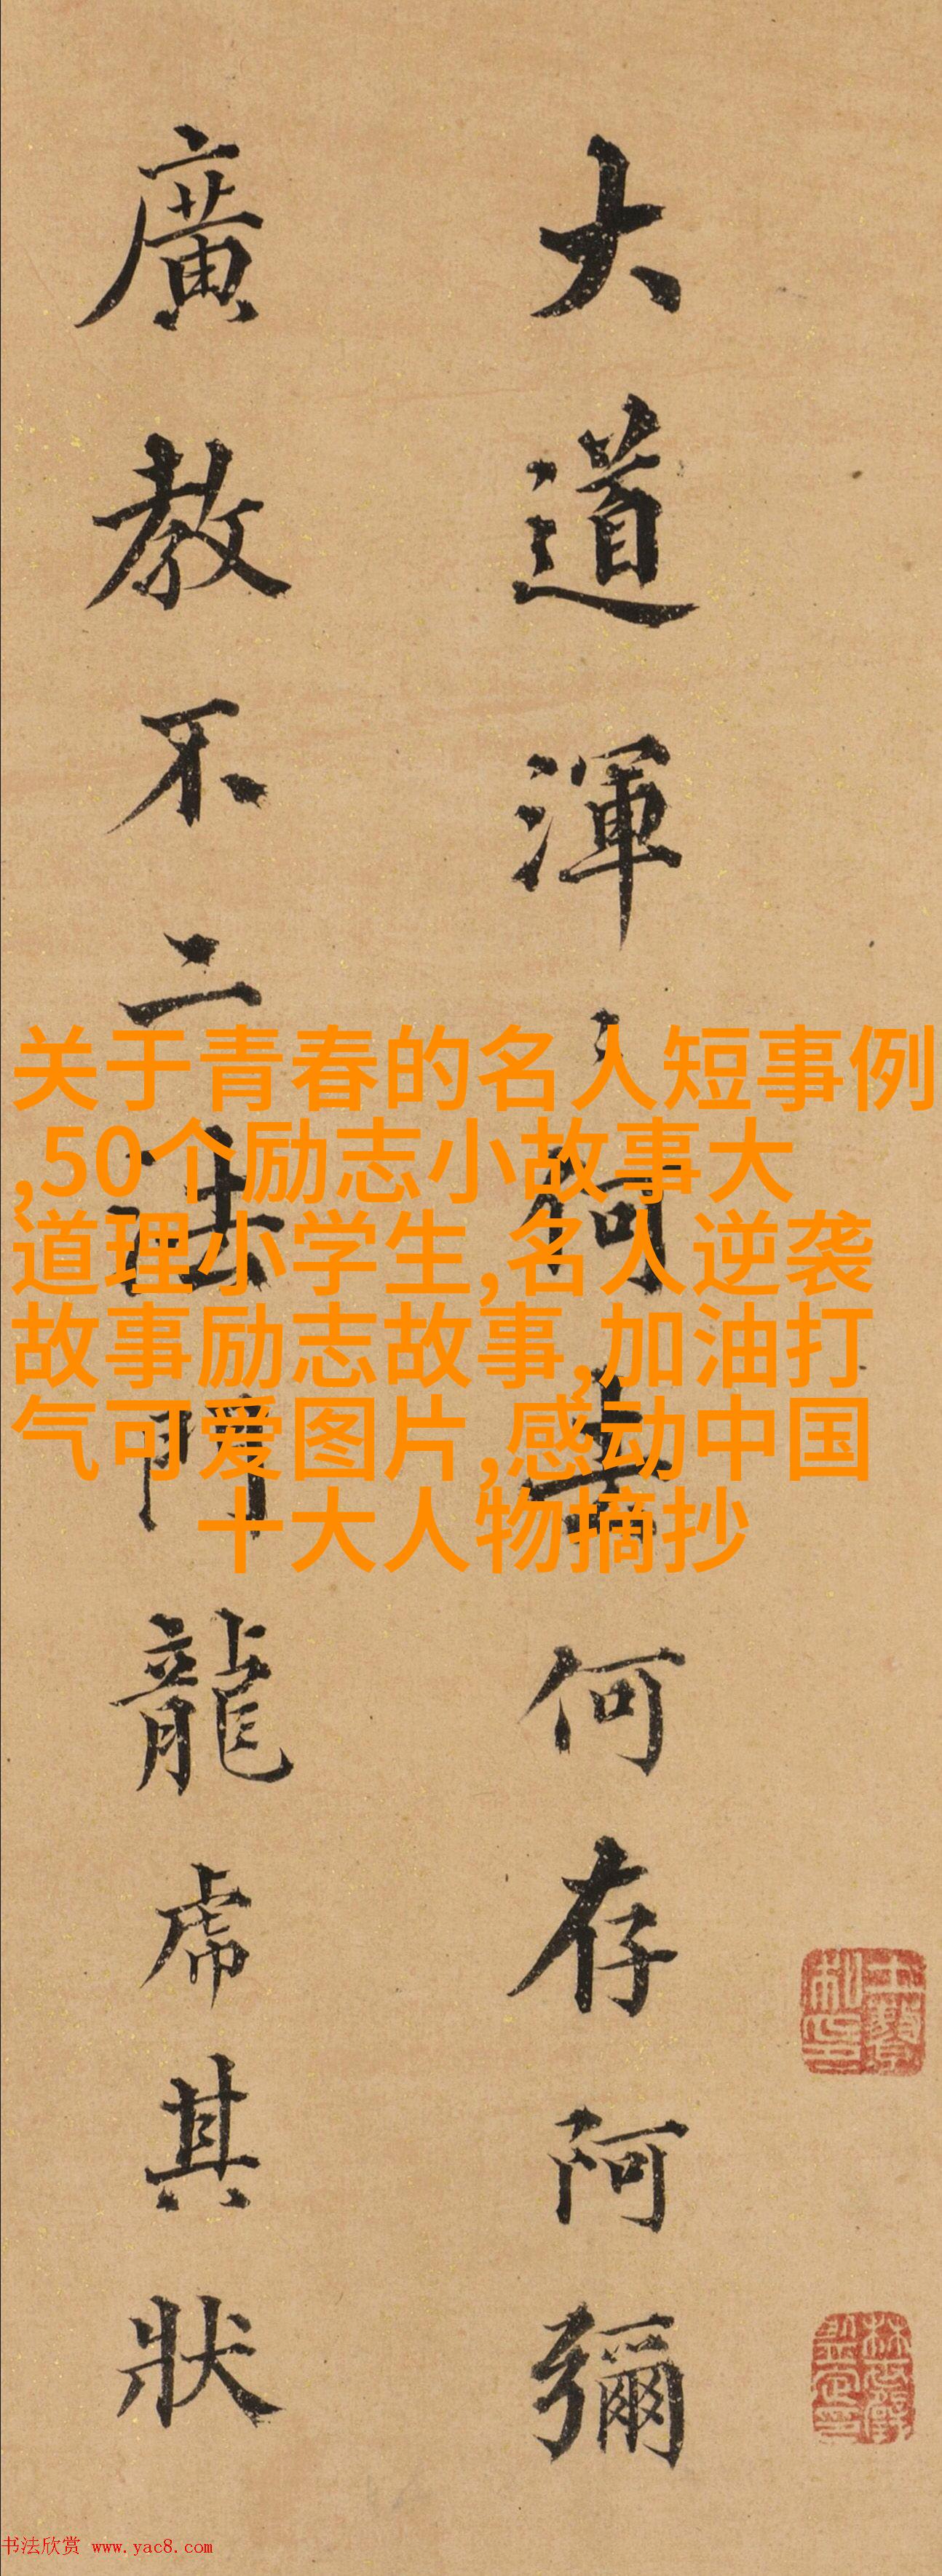 大道渾々何去何存阿彌
廣教不二法門龍虎其狀
关于青春的名人短事例
,50个励志小故事大
道理小学生,名人逆袭
故事励志故事,加油打
气可爱图片,感动中国
十大人物摘抄
书法欣赏 www.yac8.com